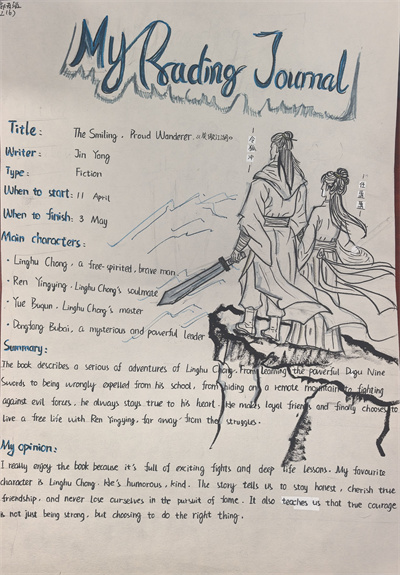 My Reading Journal
Title: The Smiling, Proud Wanderer 《笑傲江湖》
Writer: Jin Yong
Type: Fiction
When to start: 11 April
When to finish: 3 May
Main characters:
· Linghu Chong, a free-spirited, brave man.
· Ren Yingying, Linghu Chong's soulmate
· Yue Buqun, Linghu Chong's master
· Dongfang Bubai, a mysterious and powerful leader
令狐冲
任盈盈
Summary:
The book describes a serious of adventures of Linghu Chong. From learning the powerful Dugu Nine
Swords to being wrongly expelled from his school, from hiding on a remote mountain to fighting
against evil forces, he always stays true to his heart. He makes loyal friends and finally chooses to
live a free life with Ren Yingying, far away from the struggles.
My opinion:
I really enjoy the book because it's full of exciting fights and deep life lessons. My favourite
character is Linghu Chong. He's humorous, kind. The story tells us to stay honest, cherish true
friendship, and never lose ourselves in the pursuit of fame. It also teaches us that true courage
is not just being strong, but choosing to do the right thing.